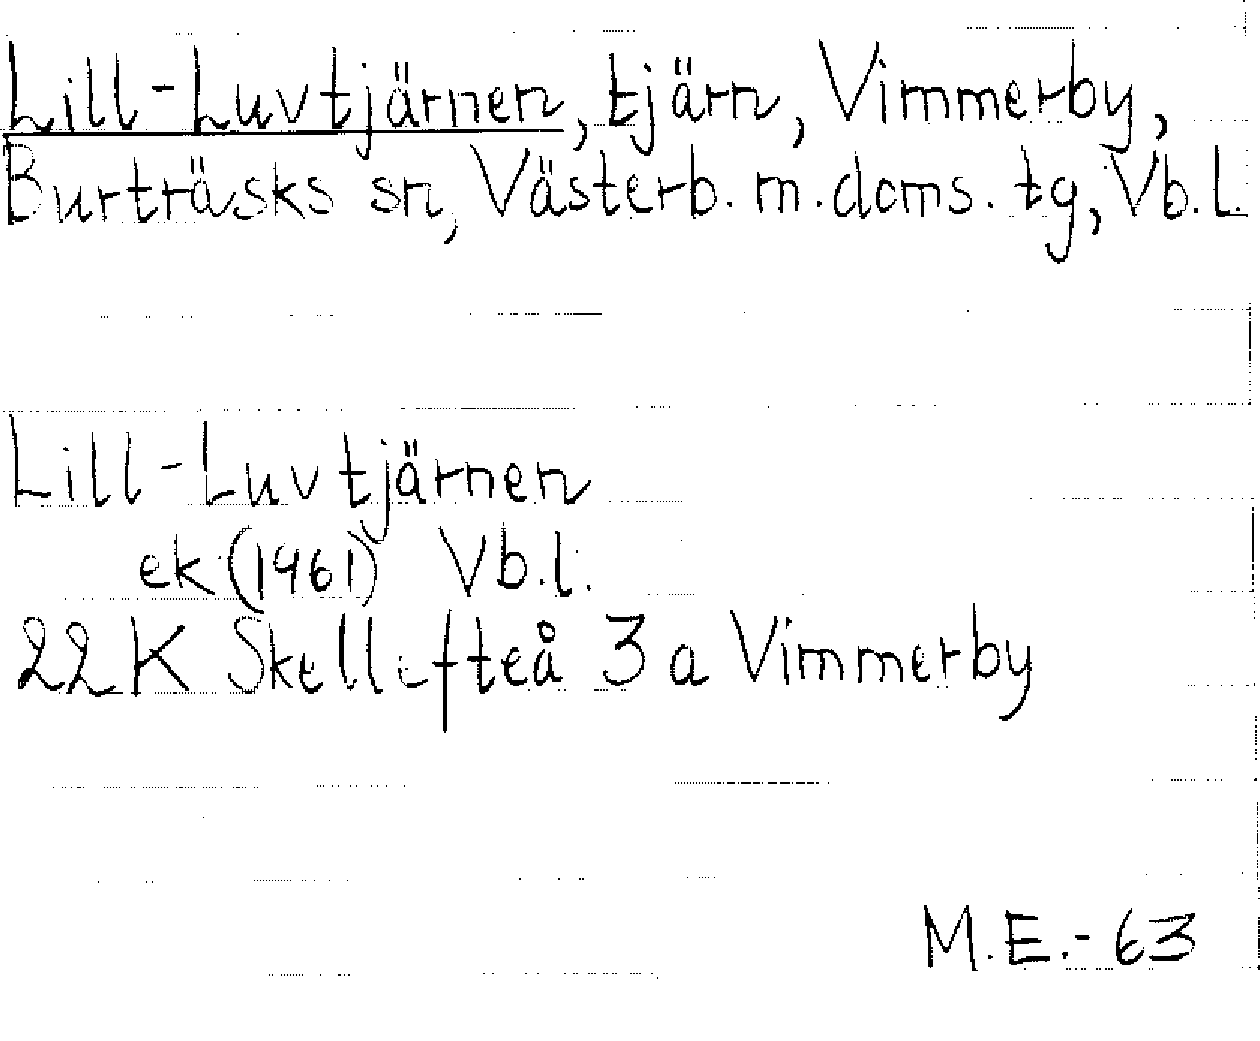 Lill-Luvtjärnen, tjärn, Vimmerby,
Burträsks sn, Västerb. m. doms. tg, Vb. l.
Lill-Luvtjärnen
ek (1961) Vb. l.
22K Skellefteå 3 a Vimmerby
M.E.-63